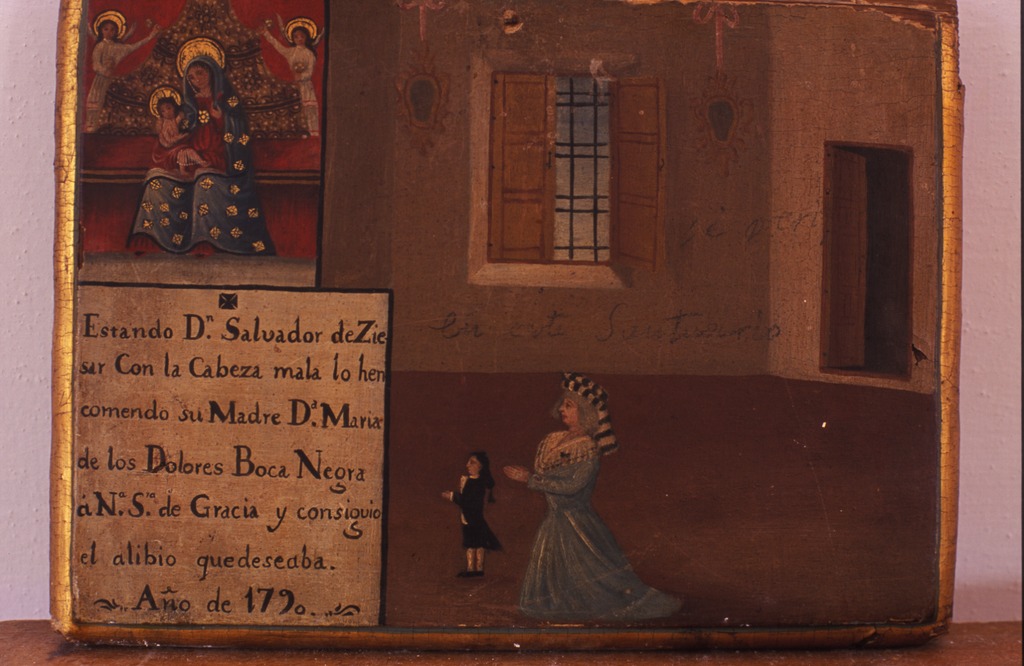 Estando Dⁿ Salvador de Zie
sar Con la Cabeza mala lo hen
comendo su Madre Dᵃ. Maria
de los Dolores Boca Negra
á Nᵃ. Sʳᵃ de Gracia y consiguio
el alibio que deseaba.
Año de 1790.
en este Santuario